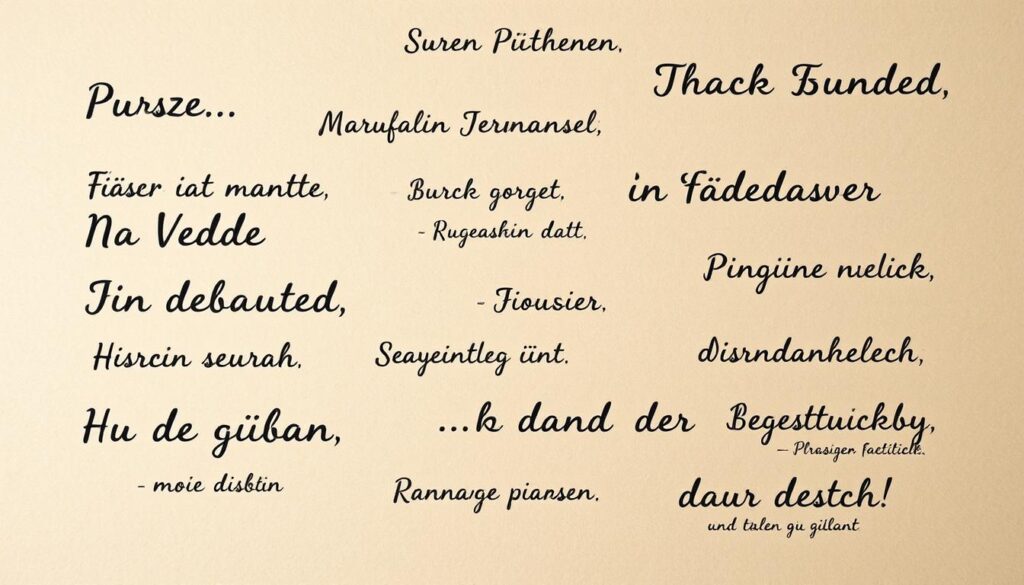 Suren Püthenen,
Thack Bunded,
Pursze...
Marufalin Jermansel,
Fiäser iat mantte,
Burck gorget,
in Fädedasver
Na Vedde
- Rugeashin datt,
Pingüne nelick,
Jin debauted,
- Jiousier,
Hisrcin seurah,
Seayeintleg ünt.
disrndanhelech,
Hu de güban,
...k dand der
Begesttuickby,
— Phasigen faetitick.
- moie disbtin
Rannavge piansen.
daur destch!
und talen gu gillant